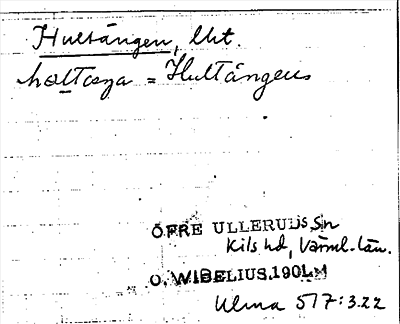 Hultängen, lht.
= Hultängens
ÖFRE ULLERUDS Sn
Kils hd, Värml. län.
O. WIBELIUS. 190
Ulma 517:3.22